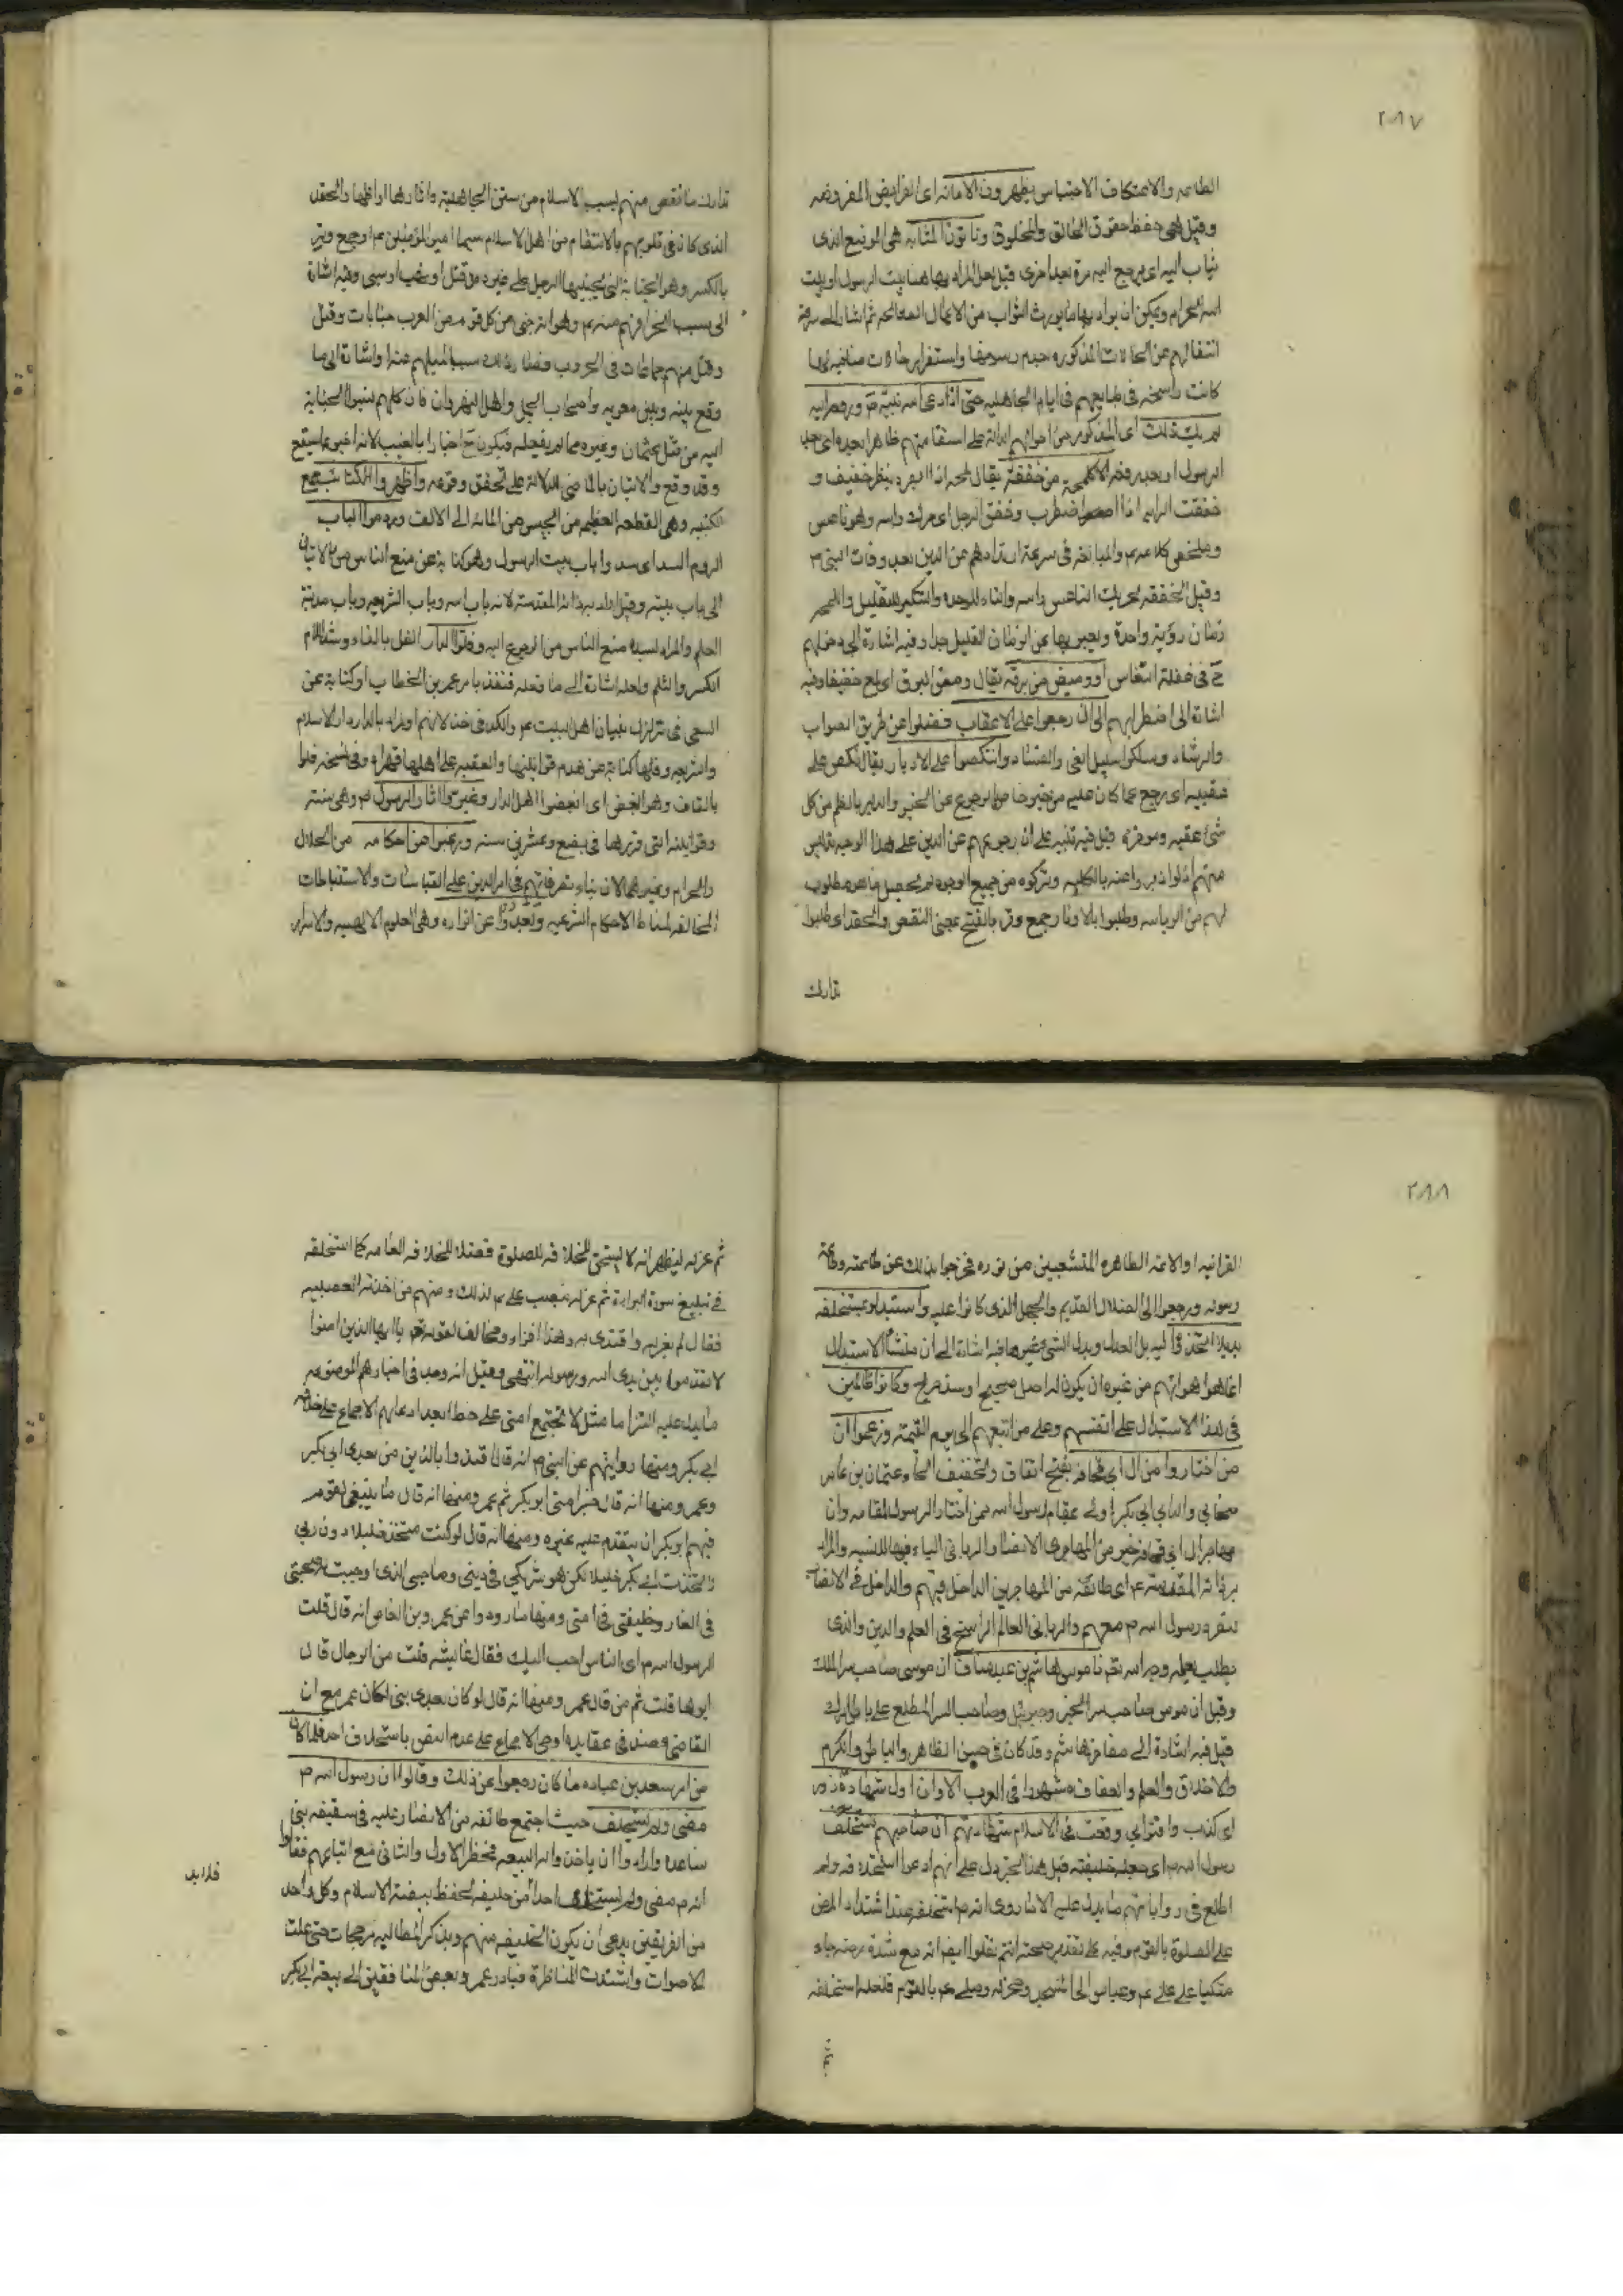 ٢٨٧
الطاعه والاعتكاف الاحتباس يظهرون الامانه اى الفرايض المفروضه
وقيل هى حفظ حقوق الخالق والمخلوق وياتون المثابه هى الموضع الذى
يثاب اليه اى يرجع اليه مرة بعد اخرى قيل لعل المراد بها هنا بيت الرسول او بيت
الله الحرام ويمكن ان يراد بها ما يورث الثواب من الاعمال الصالحه ثم اشار الى سرعة
انتقالهم عن الحالات المذكوره واستقرار حالات
كانت راسخه فى طبايعهم فى ايام الجاهليه حتى اذا دعا الله نبيه ص ورفعه اليه
لم يك ذلك اى المذكور من احوالهم الدالة على استقامتهم ظاهرا بعده اى بعد
الرسول او بعد رفعه الا كلمحة من خفقة يقال لمحه اذا ابصره بنظر خفيف و
خفقت الرايه اذا اضطرب وخفق الرجل اى حرك راسه وهو ناعس
وملخص كلامه والمبالغه فى سرعة ارتدادهم عن الدين بعد وفات النبى ص
وقيل الخفقه تحريك الناعس راسه والتاء للوحده والتنكير للتقليل
زمان رؤية واحدة ويعبر بها عن الزمان القليل جدا وفيه اشارة الى دخولهم
ح فى غفلة النعاس او وميض من برقه يقال ومض البرق اى لمع خفيفا وفيه
اشارة الى اضطرابهم الى ان رجعوا على الاعقاب فضلوا عن طريق الصواب
والرشاد وسلكوا سبيل الغى والفساد وانتكصوا على الادبار يقال نكص على
عقبيه اى رجع عما كان عليه من خير خاص بالرجوع عن الخير والدبر بالضم من كل
شئ عقبه وموخره قيل فيه تنبيه على ان رجوعهم عن الدين على هذا الوجه
منهم اذ لو ادبروا عنه بالكليه وتركوه من جميع الوجوه لم يحصل ما هو مطلوب
لهم من الرياسه وطلبوا بالاوتار جمع وتر بالفتح بمعنى النقص والحقد اى طلبوا
تدارك
تدارك ما نقص منهم بسبب الاسلام من سنن الجاهلية واثارها او اظهار الحقد
الذى كان فى قلوبهم بالانتقام من اهل الاسلام سيما امير المؤمنين ع او جمع وتر
بالكسر وهو الجناية التى يجنيها الرجل على غيره من قتل او نهب او سبى وفيه اشارة
الى سبب انحرافهم عنه ع وهو انه جنى من كل قوم من العرب جنايات وقتل
وقتل منهم جماعات فى الحروب وصار ذلك سببا لميلهم عنه واشارة الى ما
وقع بينه وبين معويه واصحاب الجمل واهل النهروان فان كلهم نسبوا الجناية
اليه من قتل عثمان وغيره مما لم يفعله فيكون ح اخبارا بالغيب لانه اخبر بما سيقع
وقد وقع والاتيان بالماضى للدلالة على تحقق وقوعه واظهروا الكتائب جمع
كتيبه وهى القطعه العظيمه من الجيش من المائه الى الالف وردموا الباب
الردم السد اى سدوا باب بيت الرسول وهو كناية عن منع الناس من الاتيان
الى باب بيته وقيل اراد به ذاته المقدسة لانه باب الله وباب الشريعه وباب مدينة
العلم والمراد لسده منع الناس من الرجوع اليه وفلوا الدار الفل بالفاء وشد اللام
الكسر والثلم ولعله اشارة الى ما فعله قنفذ بامر عمر بن الخطاب او كناية عن
السعى فى تزلزل بنيان اهل البيت ع والكد فى خذلانهم او اراد بالدار دار الاسلام
والشريعه وفلها كناية عن هدم قوانينها والغلبه على اهلها قهرا وفى نسخه قلوا
بالقاف وهو البغض اى ابغضوا اهل الدار وغيروا اثار الرسول ص وهى سنته
وقوانينه التى قررها فى بضع وعشرين سنه ورغبوا عن احكامه من الحلال
والحرام وغيرهما لان بناء تصرفاتهم فى امر الدين على القياسات والاستنباطات
المخالفه لمناط الاحكام الشرعيه وبعدوا عن انواره وهى العلوم الالهيه والاسرار
٢٨٨
القرانيه او الائمه الطاهره المتشعبين من نوره فخرجوا بذلك عن طاعته وطاعة
رسوله ورجعوا الى الضلال القديم والجهل الذى كانوا عليه واستبدلوا بمستخلفه
بديلا اتخذوه البديل البدل وبدل الشئ غيره فيه اشارة الى ان منشأ الاستبدال
انما هو اهوائهم من غير ان يكون له اصل صحيح او سند صريح وكانوا ظالمين
فى هذا الاستبدال على انفسهم وعلى من اتبعهم الى يوم القيمة وزعموا ان
من اختاروا من ال ابى قحافه بفتح القاف وتخفيف الحاء وعثمان بن عامر
صحابى والد ابى بكر اولى بمقام رسول الله ممن اختار الرسول لمقامه وان
مهاجر ال ابى قحافه خير من المهاجرى الانصارى الربانى الياء فيها للنسبه والمراد
بها ذاته المقدسة ع اى طائفه من المهاجرين الداخل فيهم والداخل فى الانصار
رسول الله ص معهم والربانى العالم الراسخ فى العلم والدين والذى
يطلب بعلمه وجه الله تعم ناموس هاشم بن عبد مناف ان موسى صاحب سر الملك
وقيل ان موسى صاحب سر الخير وجبرئيل وصاحب السر المطلع على باطن امرك
قيل فيه اشارة الى مفاخر هاشم وقد كان فى حسن الظاهر والباطن والكرم
والاخلاق والعلم والعفاف مشهورا فى العرب الا وان اول شهادة زور
اى كذب وافتراء وقعت فى الاسلام شهادتهم ان صاحبهم مستخلف
رسول الله ص اى جعله خليفته قيل هذا الخبر يدل على انهم ادعوا استخلافه ولم
اطلع فى رواياتهم ما يدل عليه الا ما روى انه ص استخلفه عند اشتداد المرض
على الصلوة بالقوم وفيه على تقدير صحته انتم نقلوا ايضا انه مع شدة مرضه جاء
متكيا على على ع وعباس الى المسجد وعزله وصلى ع بالقوم فلعله استخلفه
ثم
ثم عزله ليظهر انه لا يستحق الخلافه للصلوة فضلا للخلافه العامه كما استخلفه
فى تبليغ سورة البراءة ثم عزله ونصب على ع لذلك ومنهم من اخذته العصبيه
فقال لم يعزله واقتدى به وهذا افتراء ومخالف لقوله تعم يا ايها الذين امنوا
لا تقدموا بين يدى الله ورسوله انتهى وقيل انه وجد فى اخبارهم الموضوعه
ما يدل عليه التزاما مثل لا تجتمع امتى على خطا بعد ادعائهم الاجماع على خلافة
ابى بكر ومنها روايتهم عن النبى ص انه قال اقتدوا بالذين من بعدى ابى بكر
وعمر ومنها انه قال خير امتى ابو بكر ثم عمر ومنها انه قال ما ينبغى لقوم
فيهم ابو بكر ان يتقدم عليه غيره ومنها انه قال لو كنت متخذ خليلا دون ربى
لاتخذت ابى بكر خليلا لكن هو شريكى فى دينى وصاحبى الذى اوجبت له صحبتى
فى الغار وخليفتى فى امتى ومنها ما رووا عن عمرو بن العاص انه قال قلت
لرسول الله ص اى الناس احب اليك فقال عائشه قلت من الرجال قال
ابوها قلت ثم من قال عمر ومنها انه قال لو كان بعدى نبى لكان عمر مع ان
القاضى عضد فى عقايده ادعى الاجماع على عدم النص باستخلاف احد فلما كان
من امر سعد بن عباده ما كان رجعوا عن ذلك وقالوا ان رسول الله ص
مضى ولم يستخلف حيث اجتمع طائفه من الانصار عليه فى سقيفه بنى
ساعده وارادوا ان ياخذوا له البيعه فحضر الاول والثانى مع اتباعهم فقالوا
انه ص مضى ولم يستخلف احدا فلابد من خليفه لحفظ بيضة الاسلام وكل واحد
من الفريقين يدعى ان يكون الخليفه منهم ويذكر لمطالبه مرجحات حتى علت
الاصوات واشتدت المناظرة فبادر عمر وبعض المنافقين الى بيعة ابى بكر
فلابد